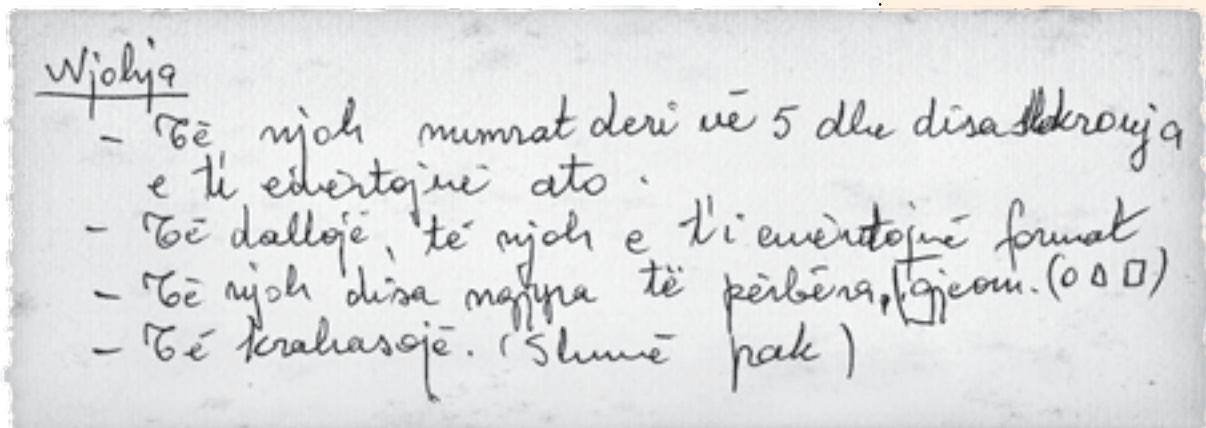 Njohja
- Të njoh numrat deri në 5 dhe disa shkronja
e ti emërtojnë ato.
- Të dallojë, të njoh e t'i emërtojnë format
- Të njoh disa ngjyra të përbëra, gjeom. (○ △ □)
- Të krahasojë. (Shumë pak)